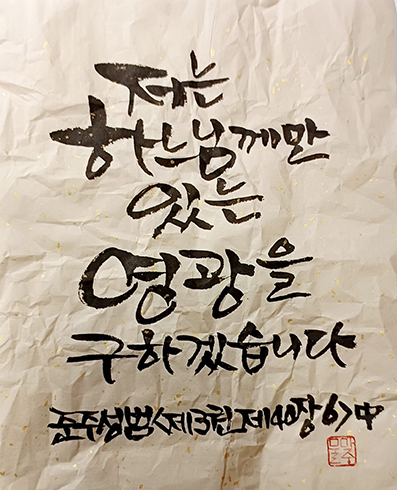 저는
하느님께만
있는
영광을
구하겠습니다
준주성범<제3권 제40장 6>中